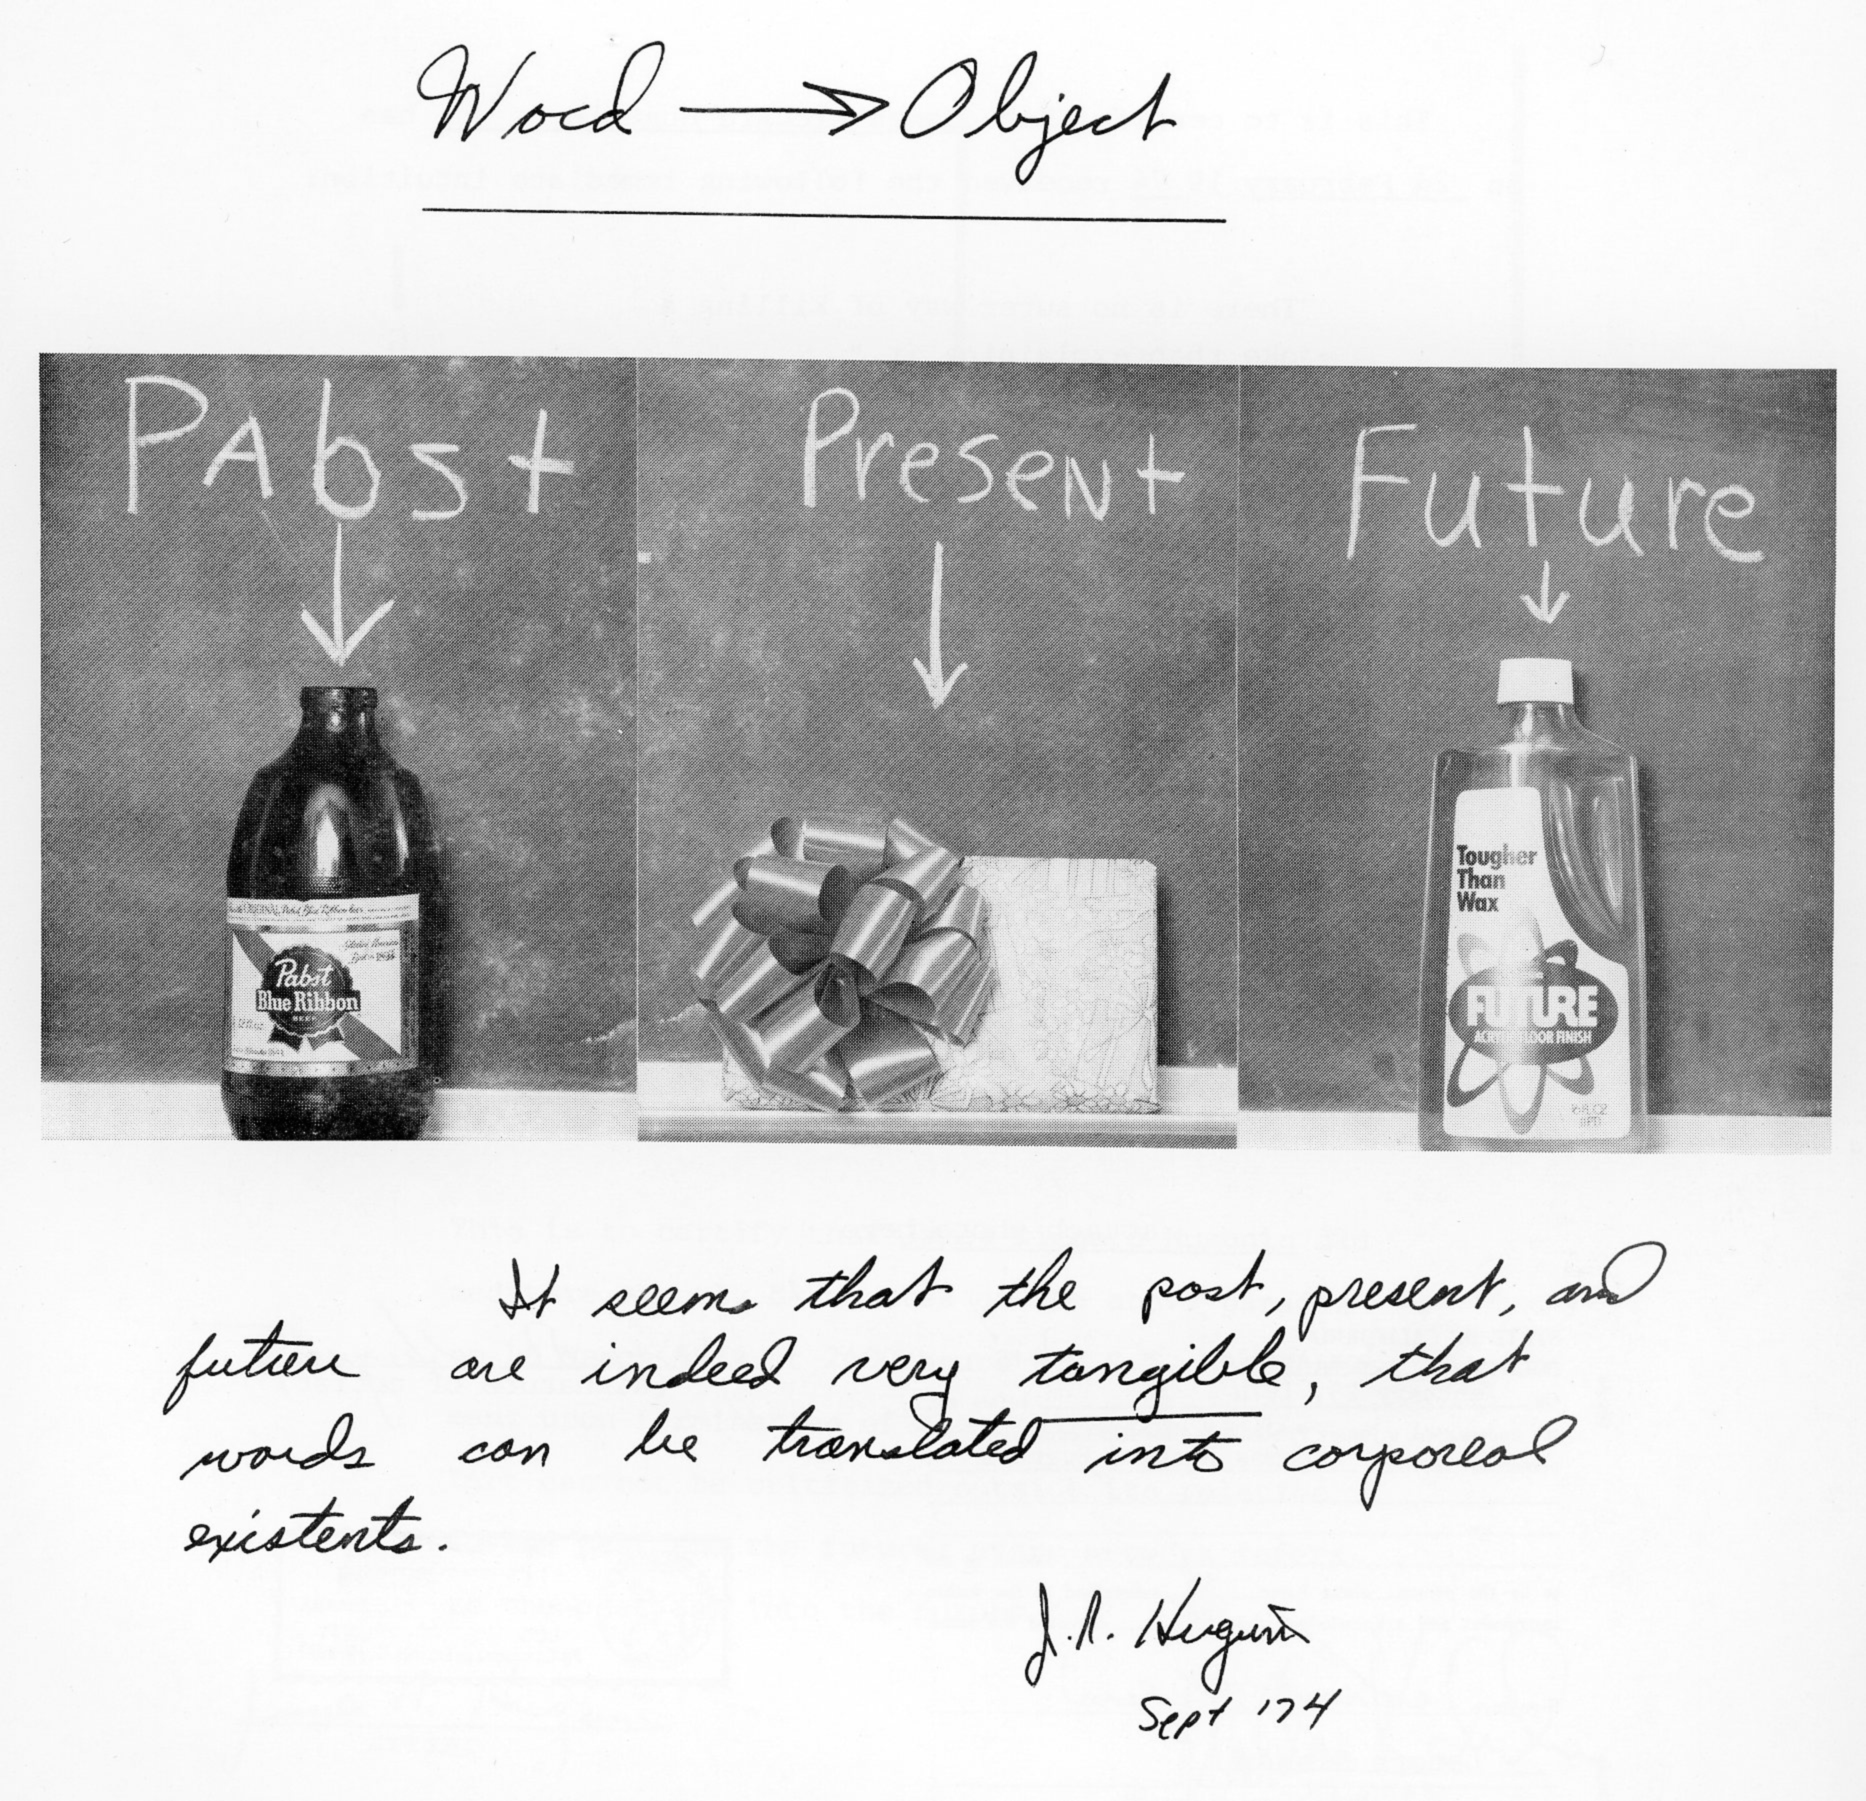 Word → Object
PAbst
Present
Future
Pabst
Blue Ribbon
BEER
Tougher
Than
Wax
FUTURE
ACRYLIC FLOOR FINISH
It seems that the past, present, and
future are indeed very tangible, that
words can be translated into corporeal
existents.
Sept '74